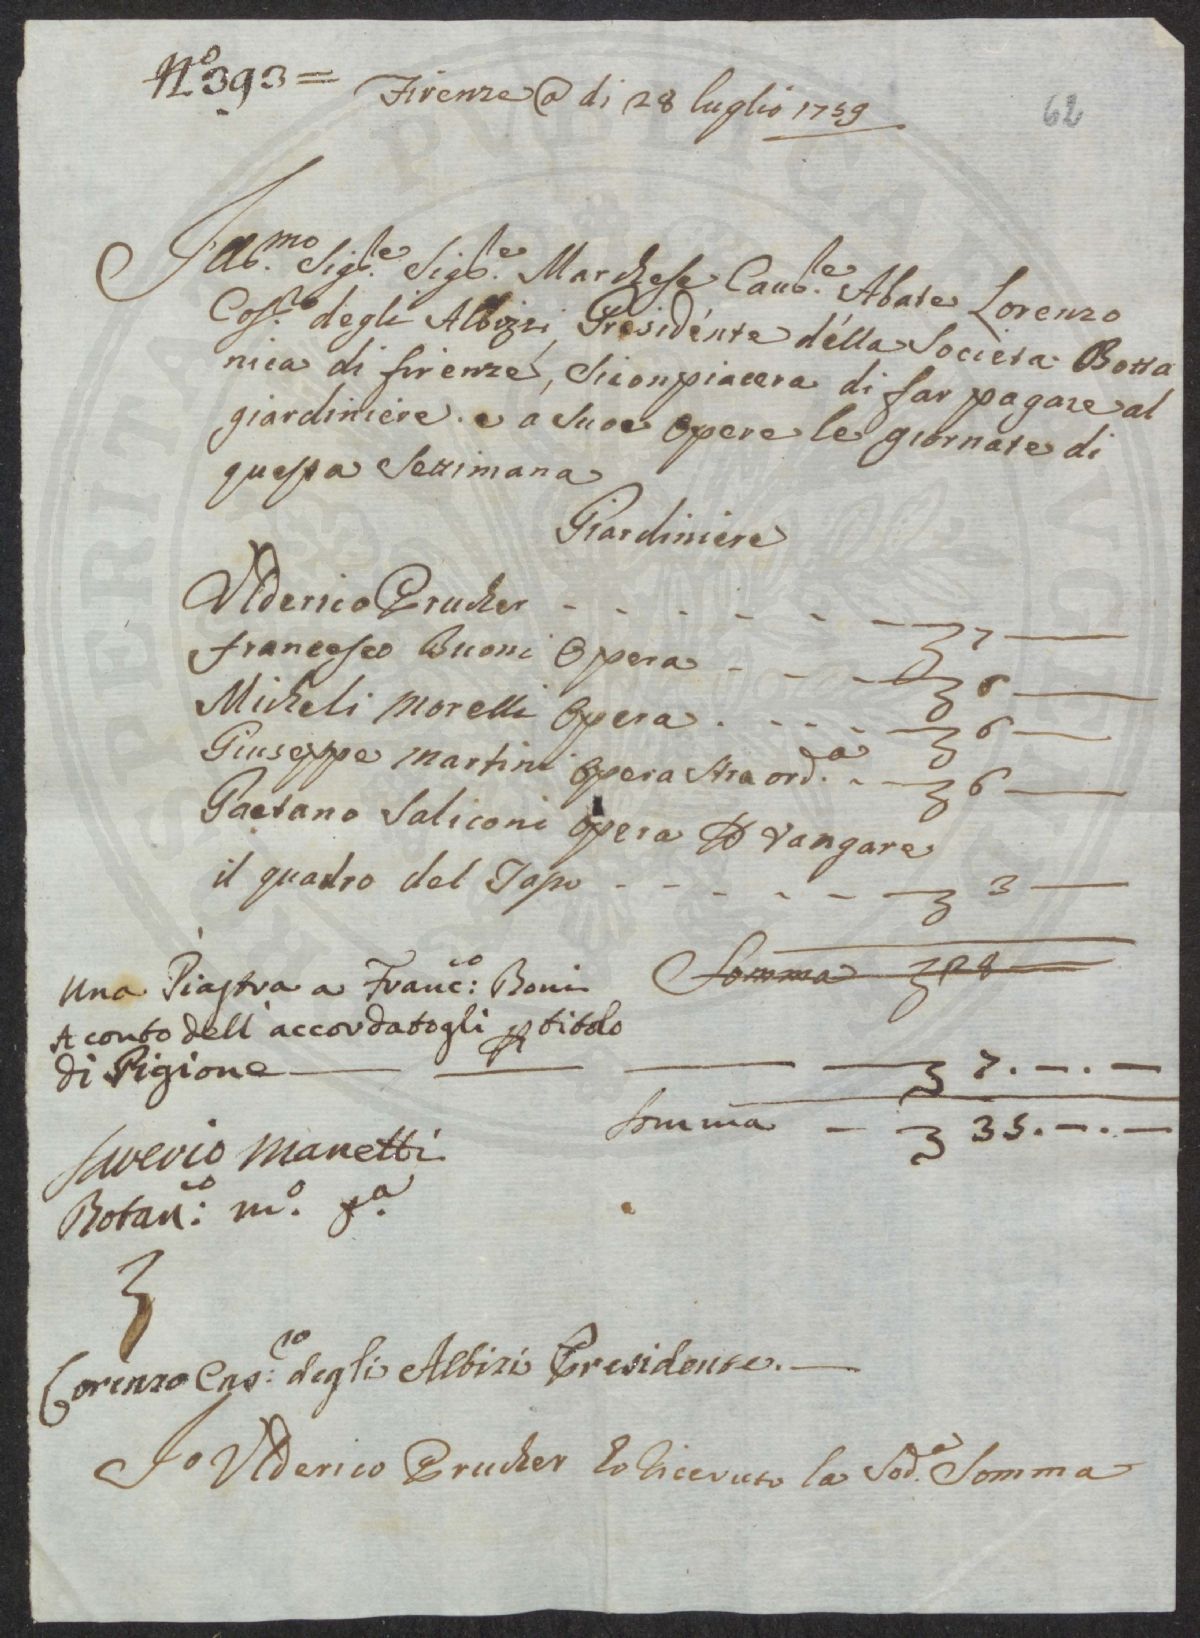 N.o 393=
Firenze @ di 28 luglio 1759
62
Illb.mo Sigb.re Sigb.re Marchese Caub.re Abate Lorenzo
Cos.mo degli Albizzi, Presidente della Societa Botta
nica di firenze, Si conpiacera di far pagare al
giardiniere e a Suoe Opere le giornate di
questa Settimana
Giardiniere
Vlderico Prucher - - - - - - - 7 —
francesco Buoni Opera - - - - 6 —
Micheli Morelli Opera - - - - 6 —
Giuseppe Martini Opera Straord.a - - 6 —
Gaetano Saliconi opera p vangare
il quadro del Tapo - - - - - 3 —
Somma 28 —
Una Piastra a Franc.co: Boni
A conto dell'accordatogli p titolo
di Pigione — — — — 7. —. —
Somma — 35. —. —
Saverio Manetti
Botan.co: m.o p.a
Lorenzo Cos:mo degli Albizi Presidente. —
Io Vlderico Prucher ho Ricevuto la Sod.a Somma